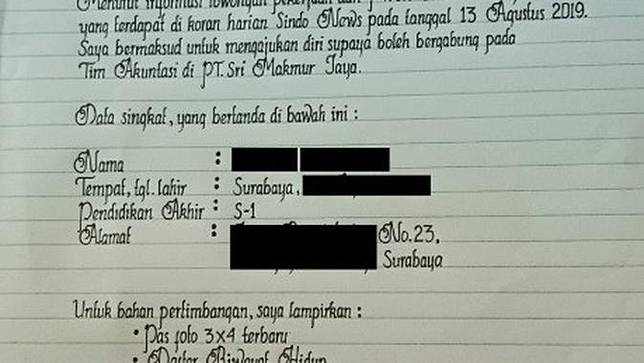 Menurut informasi lowongan pekerjaan
yang terdapat di koran harian Sindo News pada tanggal 13 Agustus 2019.
Saya bermaksud untuk mengajukan diri supaya boleh bergabung pada
Tim Akuntasi di PT. Sri Makmur Jaya.
Data singkat, yang bertanda di bawah ini :
Nama :
Tempat, tgl. lahir : Surabaya,
Pendidikan Akhir : S-1
Alamat : No. 23,
Surabaya
Untuk bahan pertimbangan, saya lampirkan :
• Pas foto 3x4 terbaru
• Daftar Riwayat Hidup